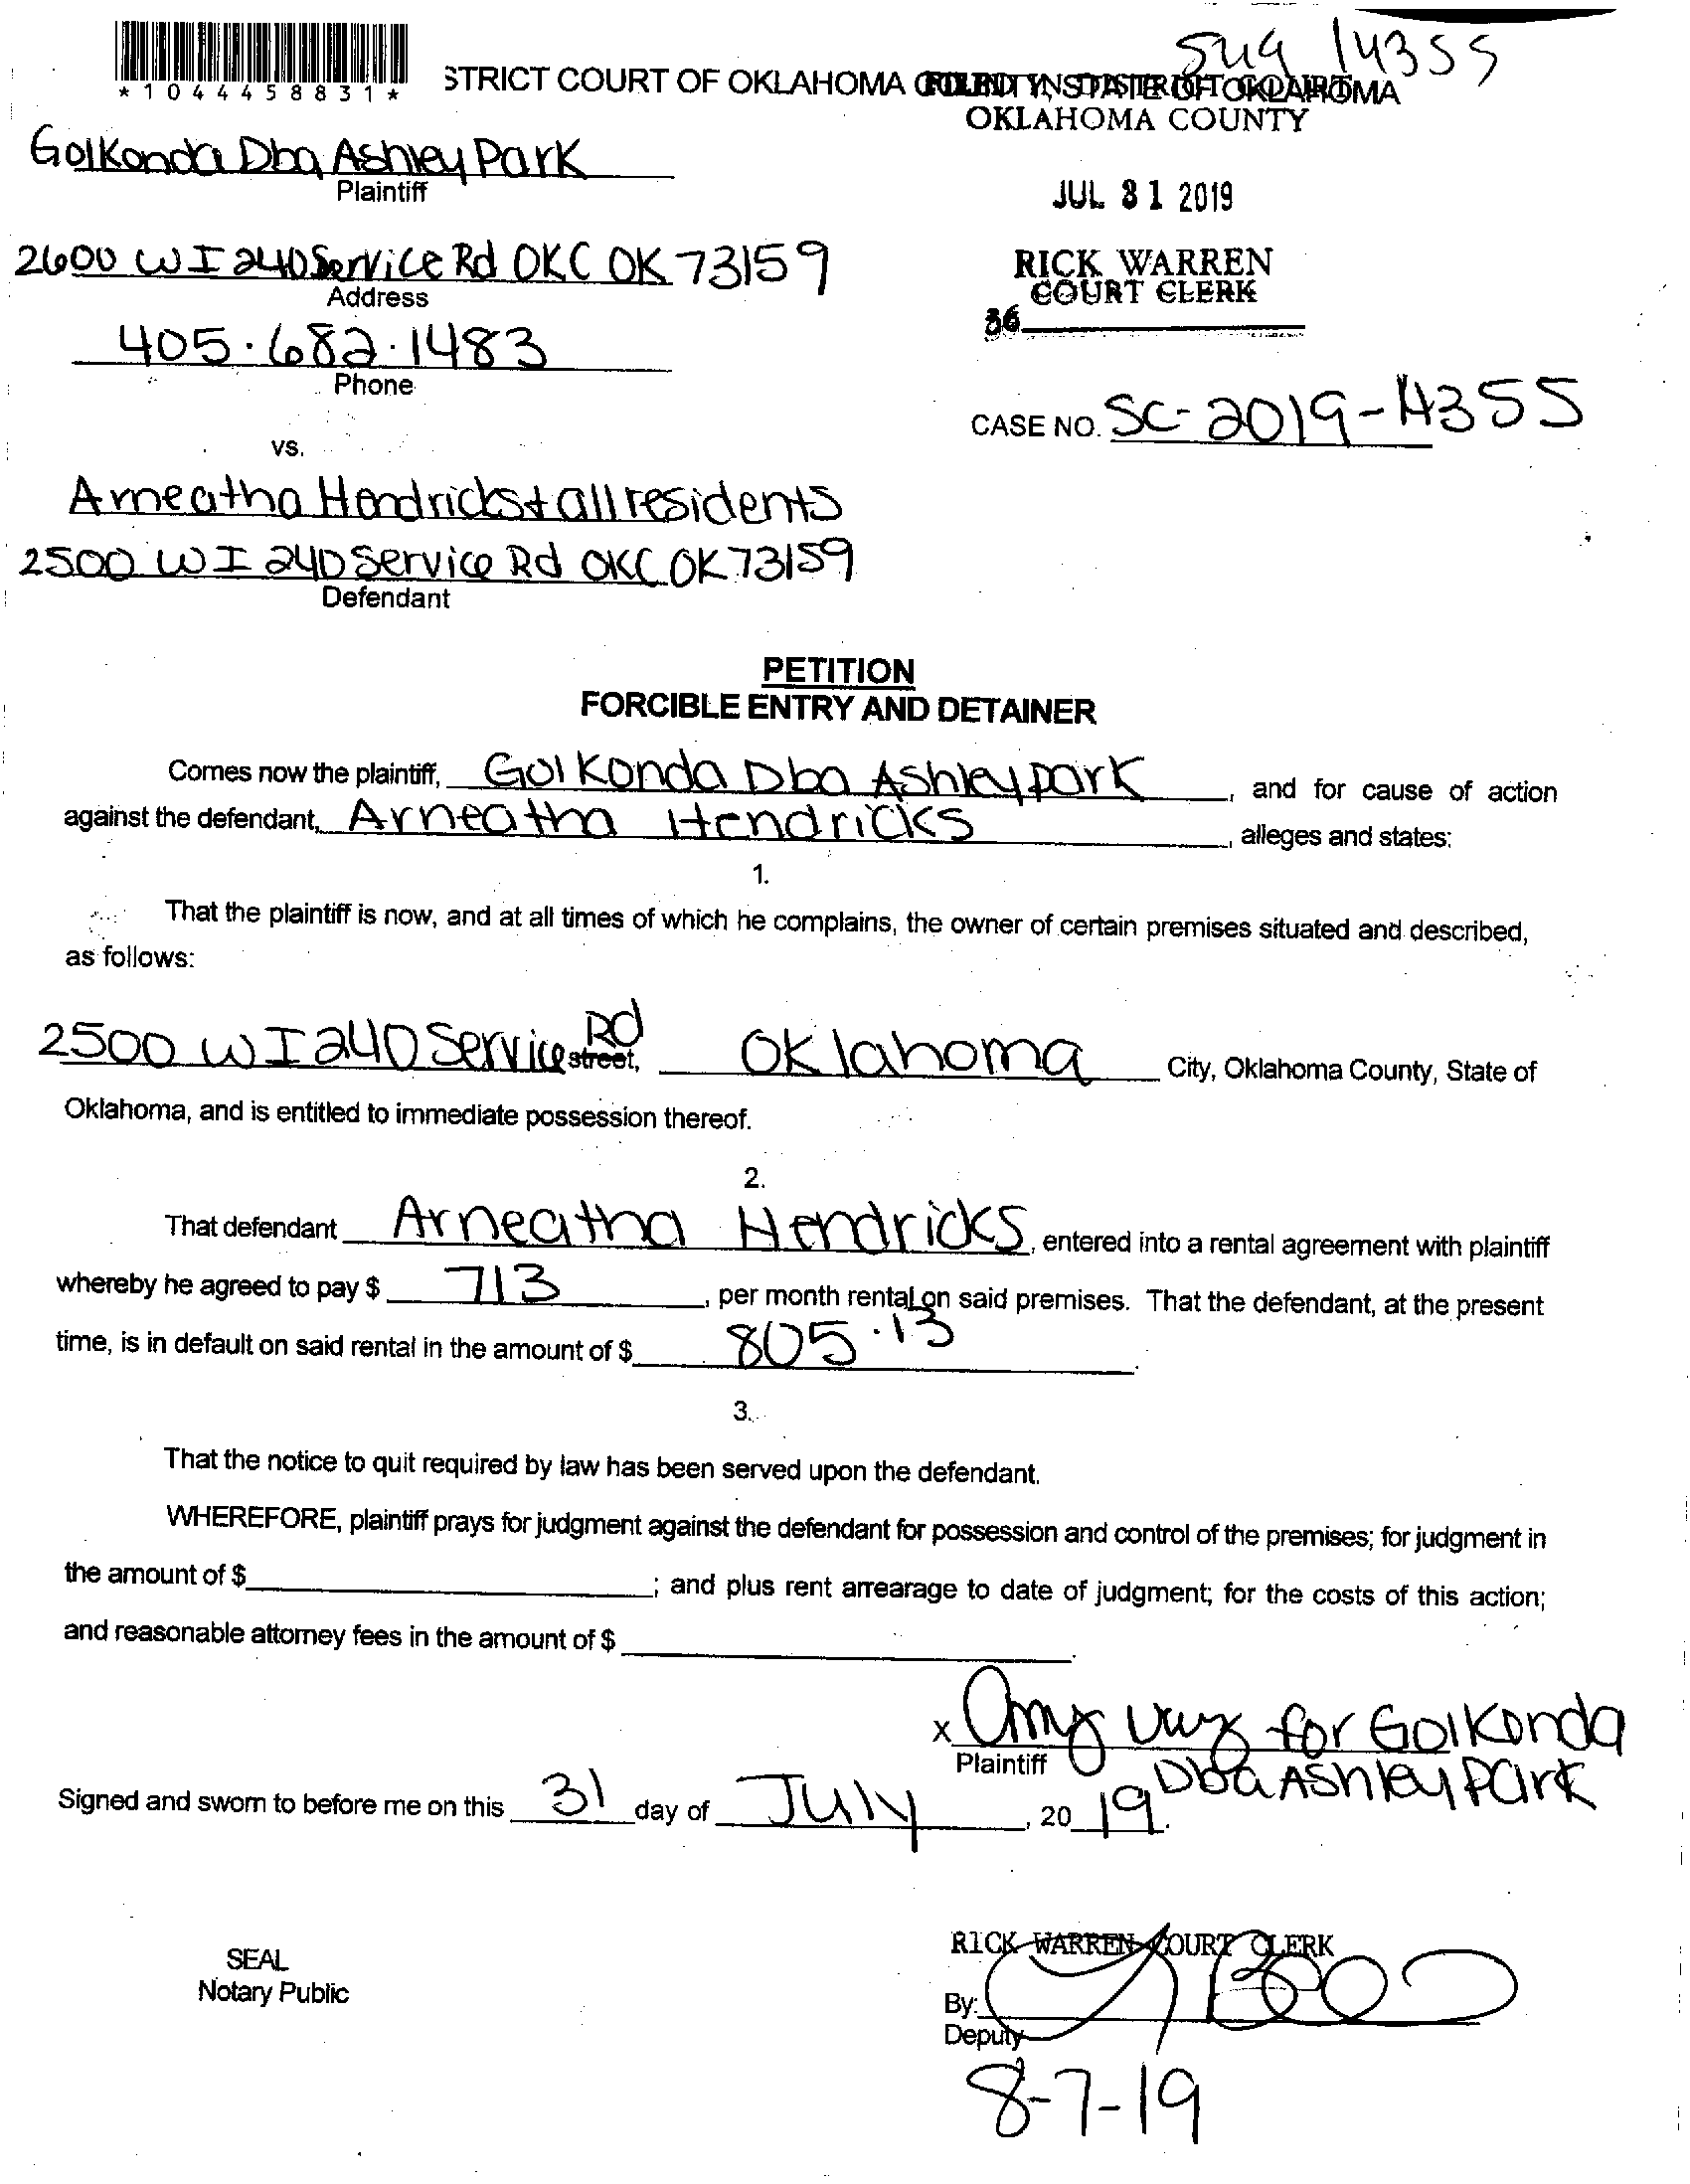 *1044458831*
STRICT COURT OF OKLAHOMA COUNTY, STATE OF OKLAHOMA
14355
FILED IN DISTRICT COURT
OKLAHOMA COUNTY
Golkonda Dba Ashley Park
Plaintiff
JUL 31 2019
2600 W I 240 Service Rd OKC OK 73159
Address
RICK WARREN
COURT CLERK
36
405.682.1483
Phone
CASE NO. SC-2019-14355
vs.
Arneatha Hendricks + all residents
2500 W I 240 Service Rd OKC OK 73159
Defendant
PETITION
FORCIBLE ENTRY AND DETAINER
Comes now the plaintiff, Golkonda Dba Ashley park, and for cause of action
against the defendant, Arneatha Hendricks, alleges and states:
1.
That the plaintiff is now, and at all times of which he complains, the owner of certain premises situated and described,
as follows:
2500 W I 240 Service Rd street, Oklahoma City, Oklahoma County, State of
Oklahoma, and is entitled to immediate possession thereof.
2.
That defendant Arneatha Hendricks, entered into a rental agreement with plaintiff
whereby he agreed to pay $ 713, per month rental on said premises. That the defendant, at the present
time, is in default on said rental in the amount of $ 805.13.
3.
That the notice to quit required by law has been served upon the defendant.
WHEREFORE, plaintiff prays for judgment against the defendant for possession and control of the premises; for judgment in
the amount of $ ; and plus rent arrearage to date of judgment; for the costs of this action;
and reasonable attorney fees in the amount of $ .
X Amy for Golkonda
Plaintiff Dba Ashley Park
Signed and sworn to before me on this 31 day of July, 20 19.
RICK WARREN COURT CLERK
SEAL
Notary Public
By:
Deputy
8-7-19